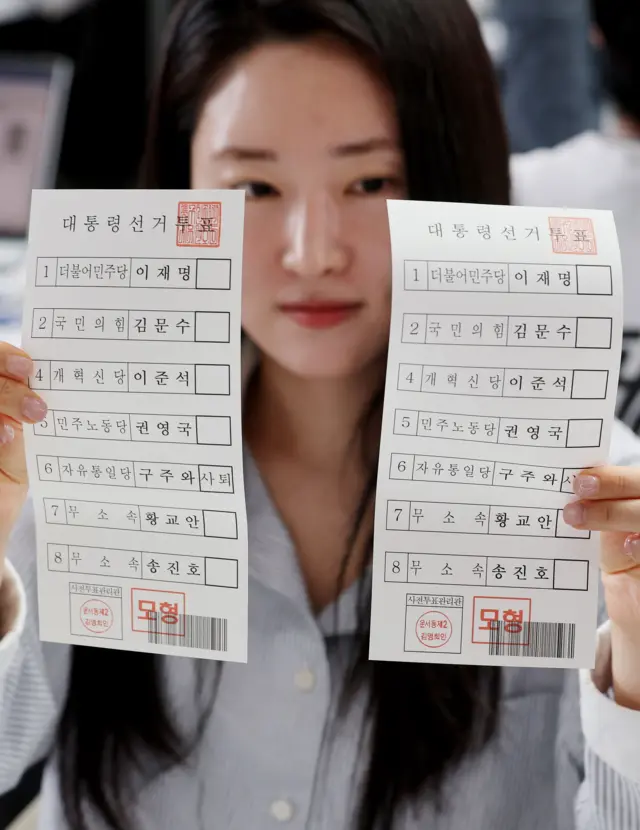 대통령선거투표
1 더불어민주당 이재명
2 국민의힘 김문수
4 개혁신당 이준석
5 민주노동당 권영국
6 자유통일당 구주와 사퇴
7 무소속 황교안
8 무소속 송진호
사전투표관리관
모형
대통령선거투표
1 더불어민주당 이재명
2 국민의힘 김문수
4 개혁신당 이준석
5 민주노동당 권영국
6 자유통일당 구주와 사
7 무소속 황교안
8 무소속 송진호
사전투표관리관
모형